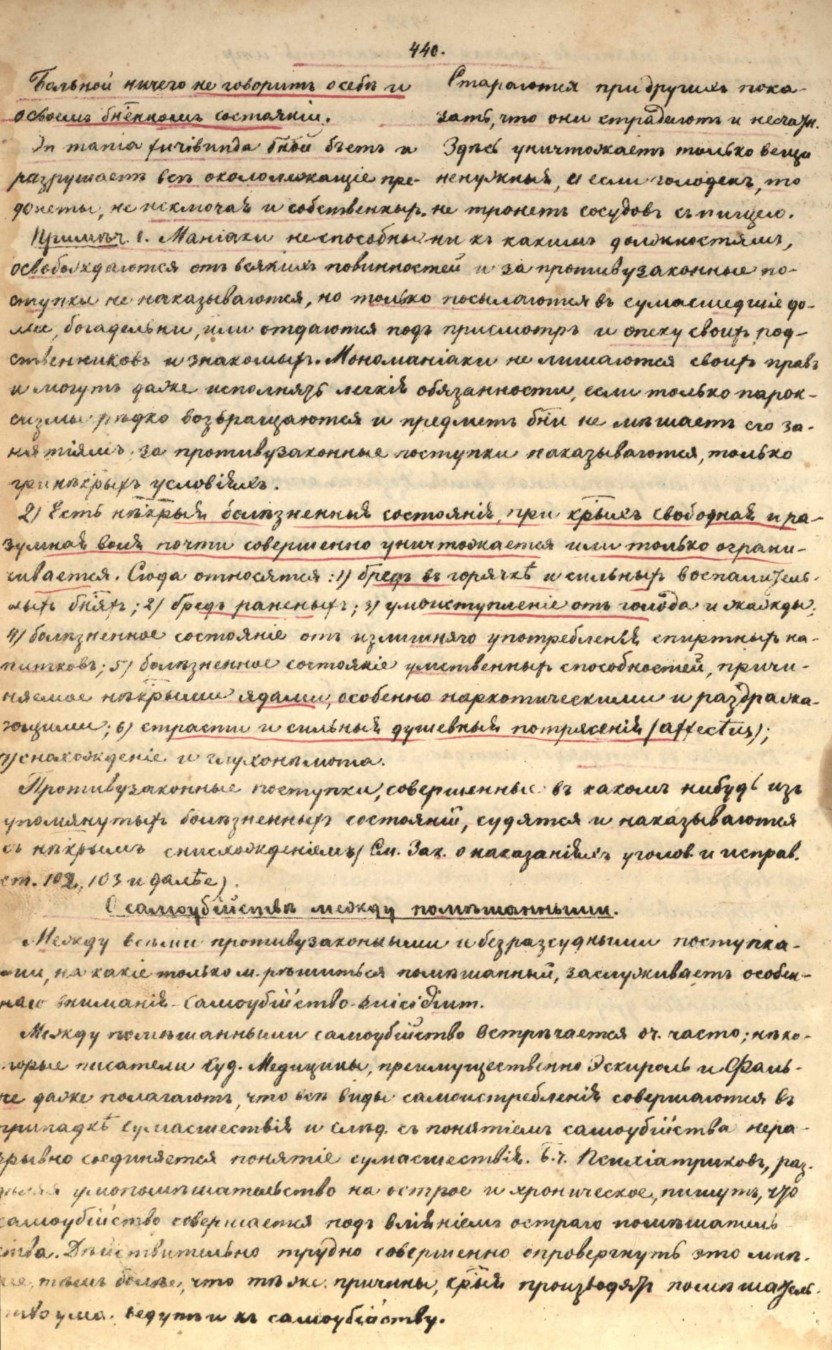 440.
Больной ничего не говоритъ о себѣ и
о своемъ бѣнномъ состояніи.
In mania furibunda бной бьетъ и
разрушаетъ всѣ окололежащіе пре-
дметы, не исключая и собственныхъ.
Стараются при другихъ пока-
зать, что они страдаютъ и несчастн.
Здѣсь уничтожаетъ только вещи
ненужныя, и если голоденъ, то
не тронетъ сосудовъ съ пищею.
Примѣч. 1. Маніаки неспособны ни къ какимъ должностямъ,
освобождаются отъ всякихъ повинностей и за противузаконные по-
ступки не наказываются, но только посылаются въ сумасшедшіе до-
ма, богадельни, или отдаются подъ присмотръ и опеку своихъ род-
ственниковъ и знакомыхъ. Мономаніаки не лишаются своихъ правъ
и могутъ даже исполнять легкія обязанности, если только парок-
сизмы рѣдко возвращаются и предметъ бни не мѣшаетъ его за-
нятіямъ. за противузаконные поступки наказываются, только
при нѣкрыхъ условіяхъ.
2) Есть нѣкрыя болѣзненныя состоянія, при крыхъ свободная и ра-
зумная воля почти совершенно уничтожается или только ограни-
чивается. Сюда относятся: 1) бредъ въ горячкѣ и сильныхъ воспалитель-
ныхъ бняхъ; 2) бредъ раненыхъ; 3) умоиступленіе отъ голода и жажды;
4) болѣзненное состояніе отъ излишняго употребленія спиртныхъ на-
питковъ; 5) болѣзненное состояніе умственныхъ способностей, причи-
няемое нѣкрыми ядами, особенно наркотическими и раздража-
ющими; 6) страсти и сильныя душевныя потрясенія (affectus);
7) снахожденіе и глухонѣмота.
Противузаконные поступки, совершенные въ какомъ нибудь изъ
упомянутыхъ болѣзненныхъ состояній, судятся и наказываются
съ нѣкрымъ снисхожденіемъ (См. Зак. о наказаніяхъ уголов. и исправ.
ст. 102, 103 и далѣе).
О самоубійствѣ между помѣшанными.
Между всѣми противузаконными и безразсудными поступка-
ми, на какіе только м. рѣшиться помѣшанный, заслуживаетъ особен-
наго вниманія - самоубійство - suicidium.
Между помѣшанными самоубійство встрѣчается оч. часто; нѣко-
торые писатели Суд. Медицины, преимущественно Эскироль и Фаль-
ре даже полагаютъ, что всѣ виды самоистребленія совершаются въ
припадкѣ сумасшествія и слѣд. съ понятіемъ самоубійства нера-
зрывно соединяется понятіе сумасшествія. Б. ч. Психіатриковъ, раз-
дѣляя умопомѣшательство на острое и хроническое, пишутъ, что
самоубійство совершается подъ вліяніемъ остраго помѣшатель-
ства. Дѣйствительно трудно совершенно опровергнуть это мнѣ-
ніе, тѣмъ болѣе, что тѣ же причины, крыя производятъ помѣшатель-
ство ума. ведутъ и къ самоубійству.